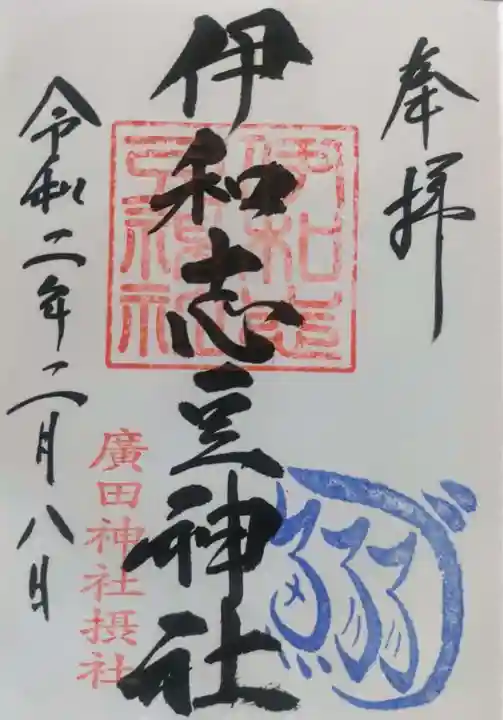 奉拝
伊和志豆神社
伊和志豆神社
廣田神社摂社
鰯
令和二年二月八日